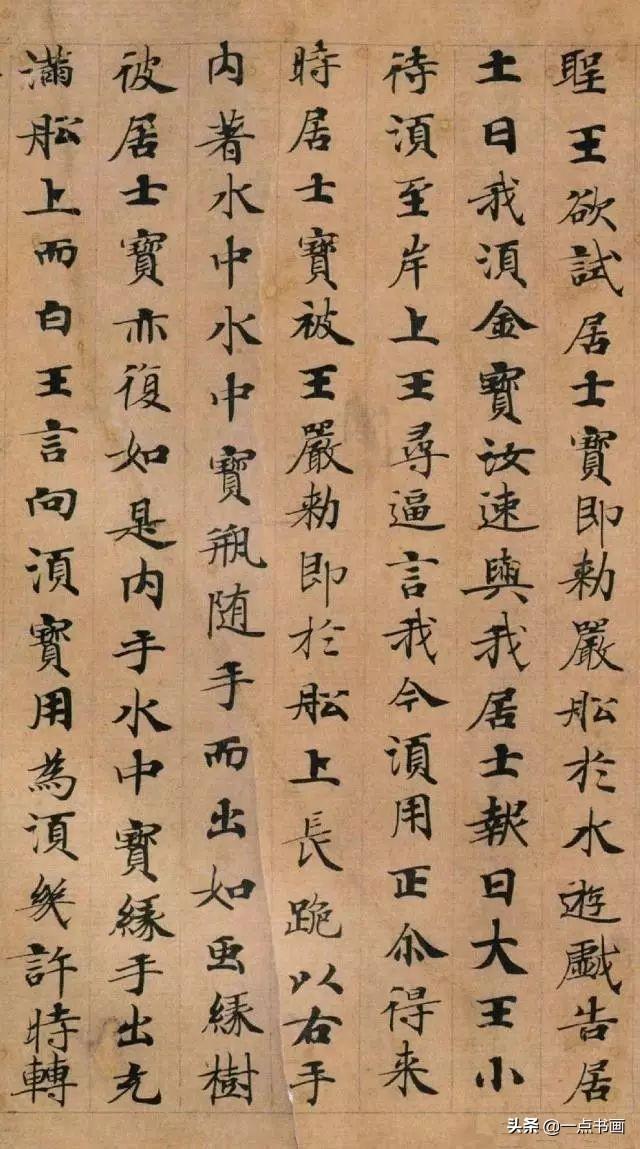 聖王欲試居士寶即勑嚴舩於水遊戲告居
士曰我湏金寶汝速與我居士報曰大王小
待湏至岸上王尋逼言我今湏用正尒得来
時居士寶被王嚴勑即於舩上長跪以右手
内著水中水中寶瓶随手而出如虫緣樹
彼居士寶亦復如是内手水中寶緣手出充
滿舩上而白王言向湏寶用為湏幾許時轉
头条 @一点书画